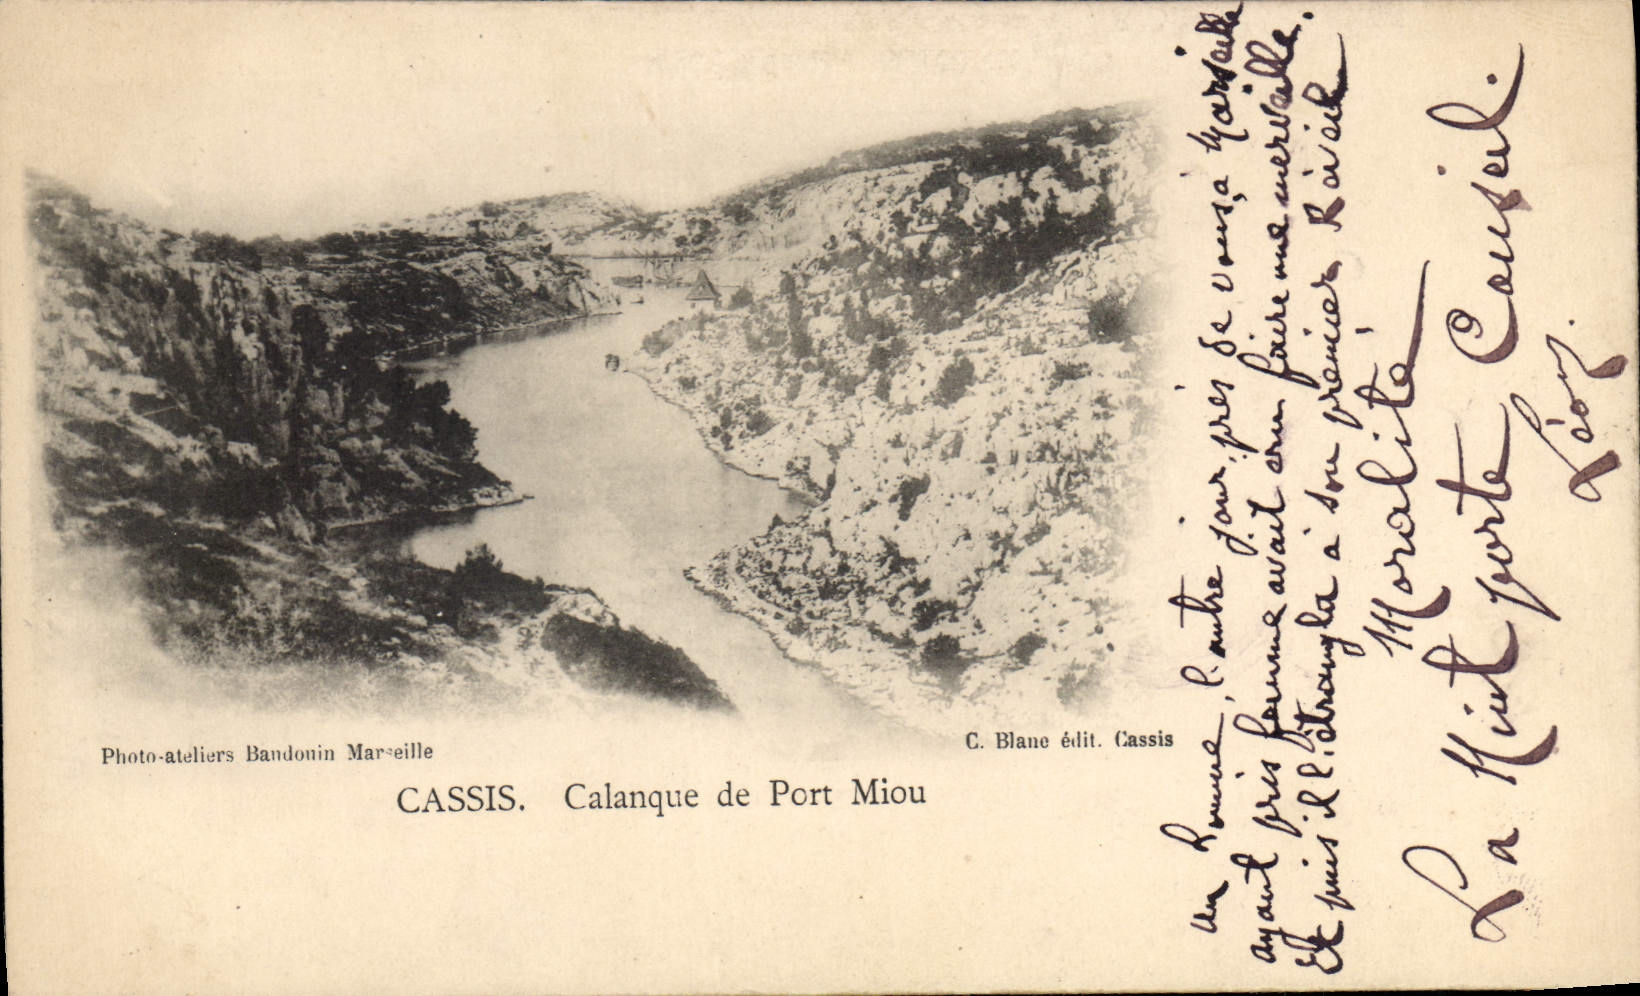 Photo-ateliers Baudouin Marseille
C. Blanc édit. Cassis
CASSIS. Calanque de Port Miou
Un homme, l'autre jour, près de vous, a Marseille
ayant pris femme avait cru faire une merveille.
Et puis il l'étrangla à son premier Réveil
Moralité
La Nuit porte Conseil.
Léon.